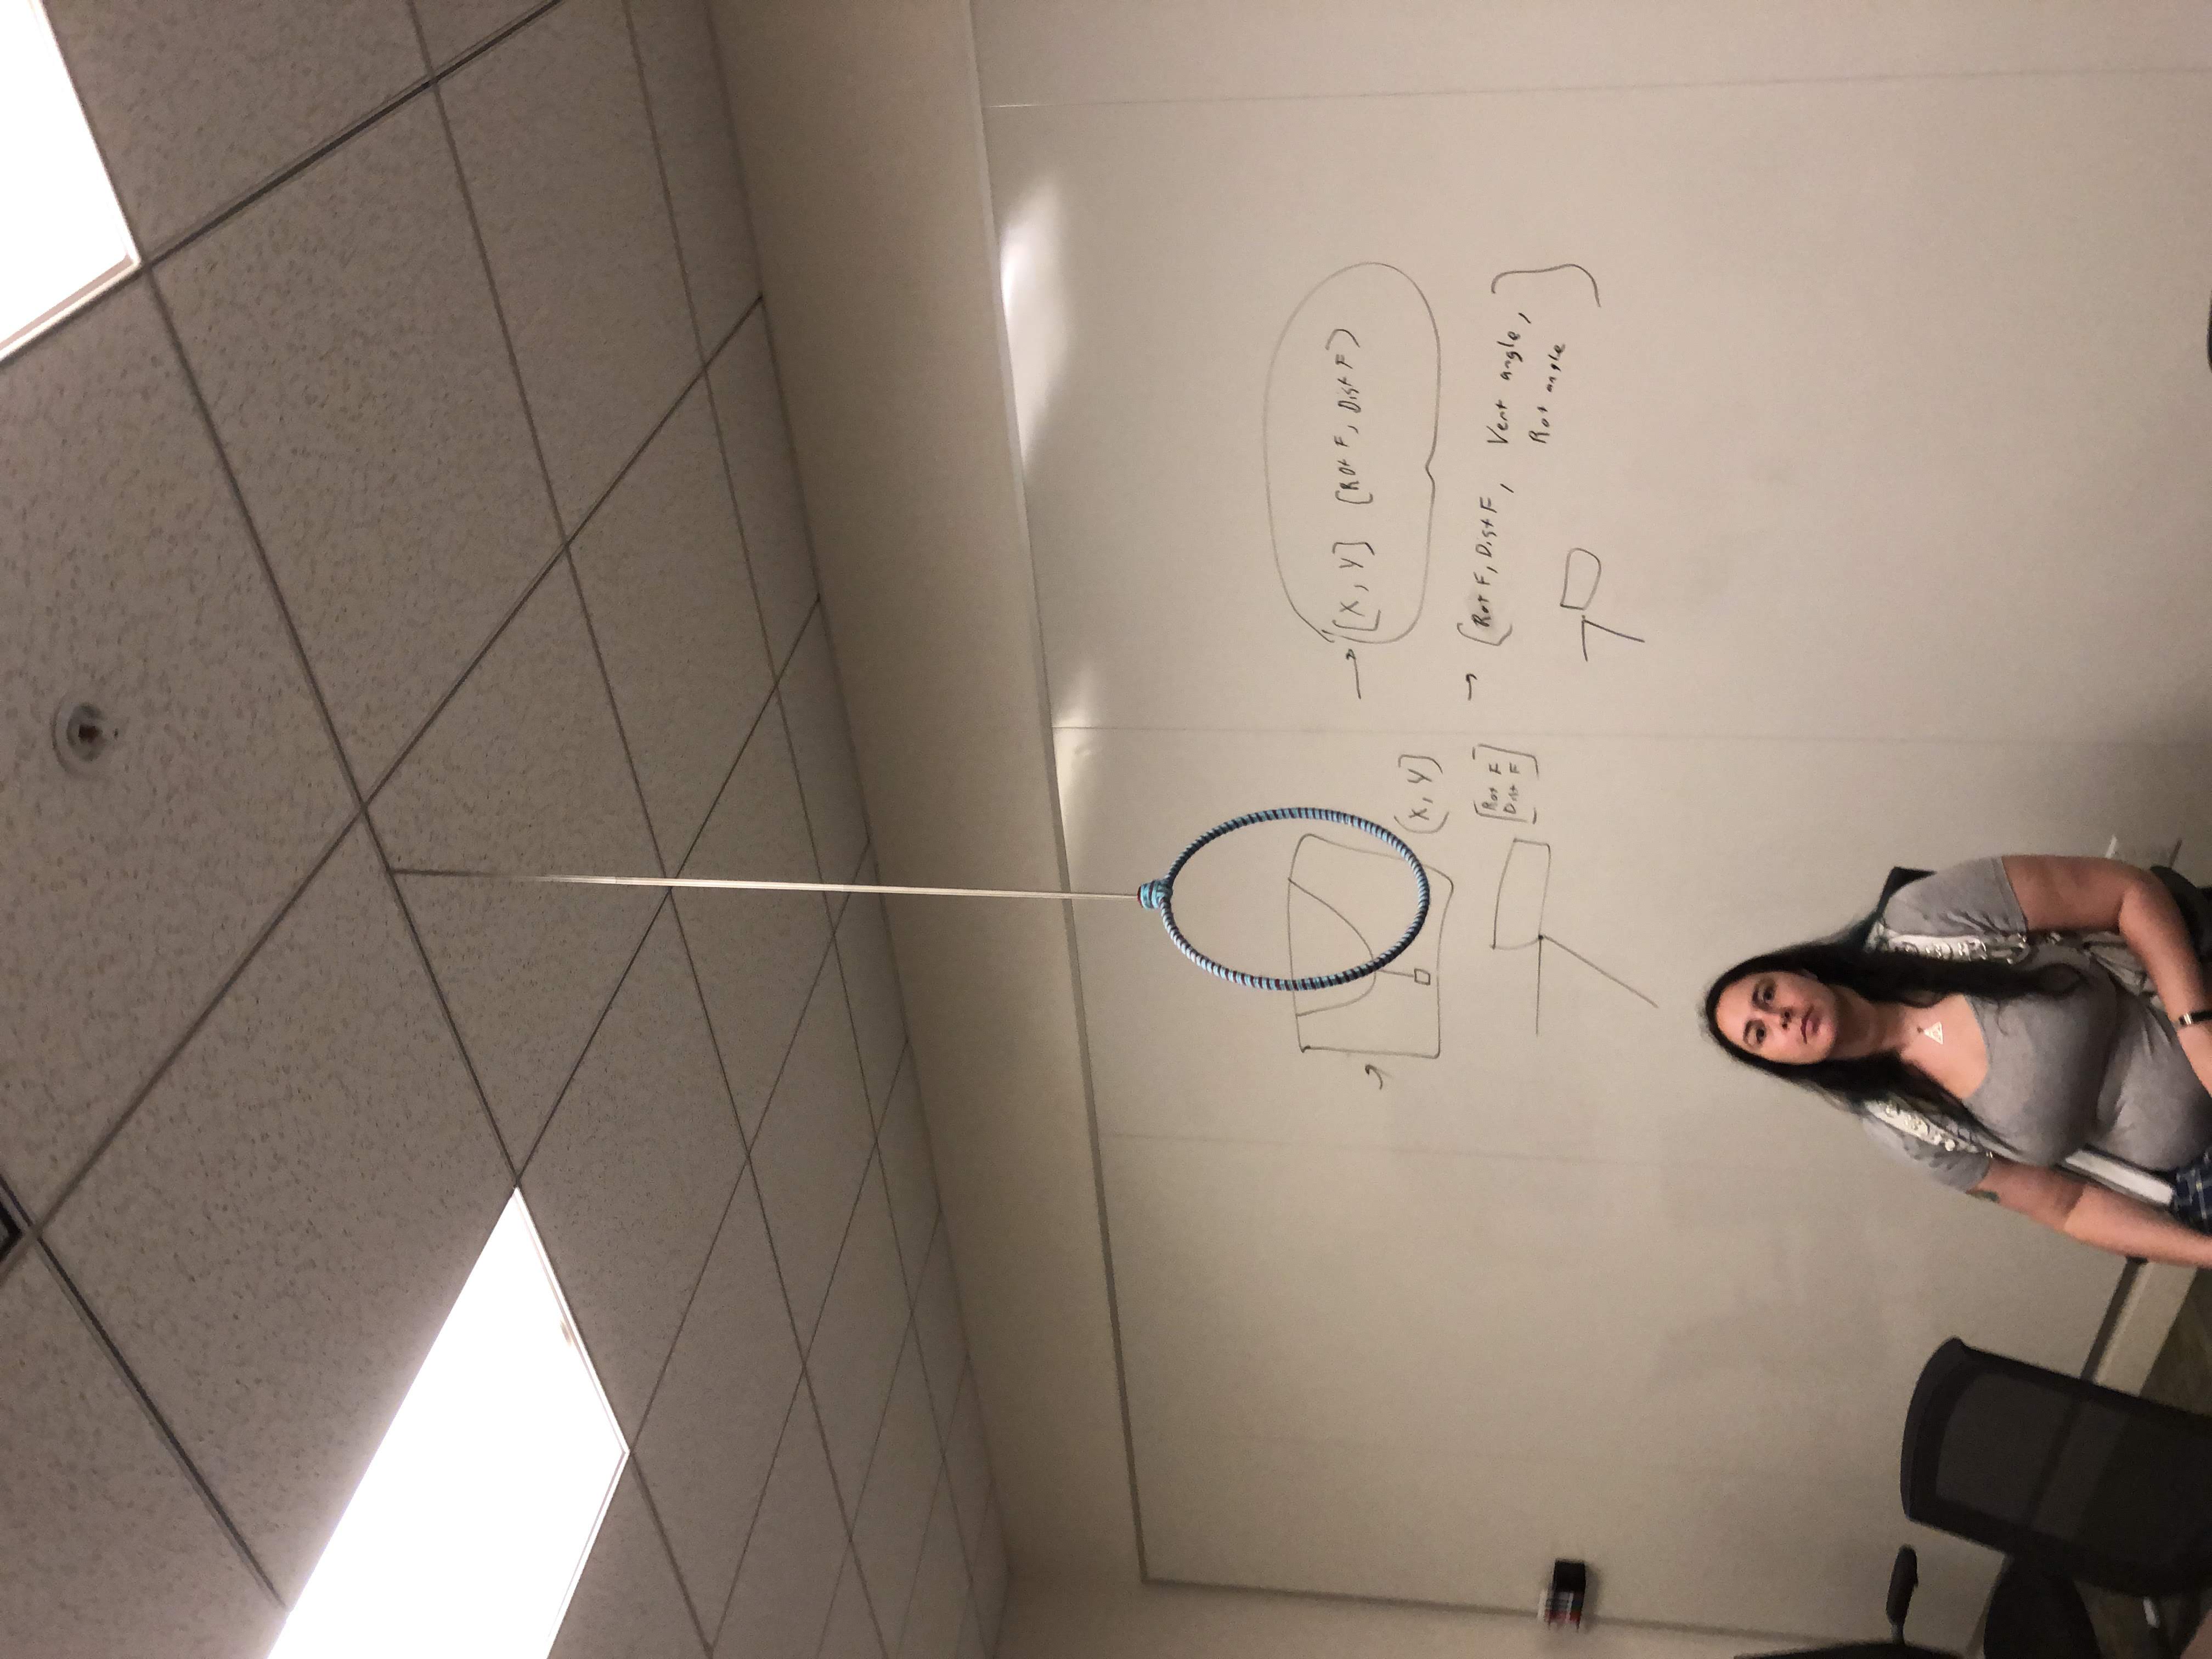 [X, Y] [Rot F, Dist F)
(X, Y]
[Rot F
Dist F]
[Rot F, Dist F, Vert angle,
Rot angle]